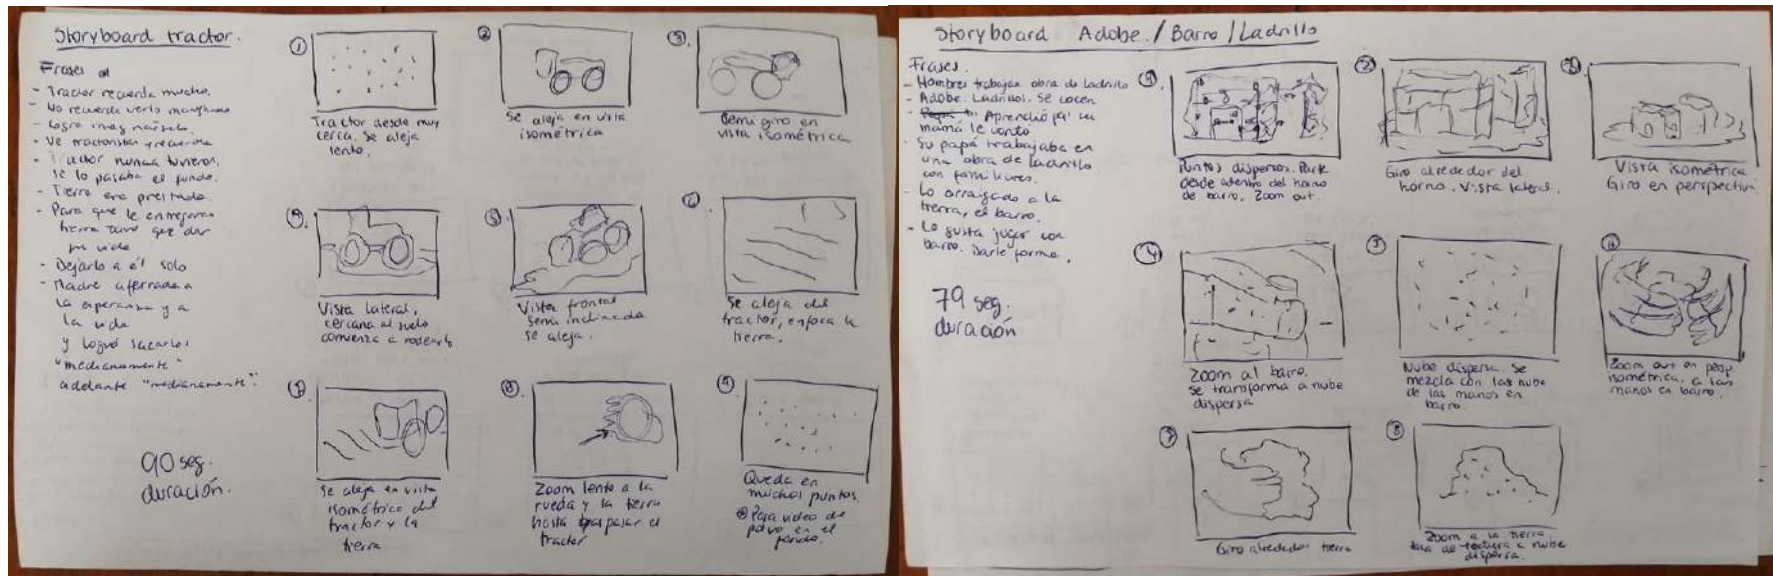 Storyboard tractor.
Frases
- Tractor recuerda mucho.
- No recuerda verlo
- Logra
- Ve tractoristas y recuerda
- Tractor nunca tuvieron,
se lo pasaba el fundo.
- Tierra era prestada.
- Para que le entregaran
tierra tuvo que dar
su vida
- Dejarlo a él solo
- Madre aferrada a
la esperanza y a
la vida
y logró sacarlos
"medianamente"
adelante "medianamente".
90 seg.
duración.
1
Tractor desde muy
cerca, se aleja
lento.
2
Se aleja en vista
isométrica
3.
Semi giro en
vista isométrica
4.
Vista lateral,
cercana al suelo
comienza a rodearlo
5.
Vista frontal
semi inclinada
se aleja.
6
Se aleja del
tractor, enfoca la
tierra.
7
Se aleja en vista
isométrica del
tractor y la
tierra
8
Zoom lento a la
rueda y la tierra
hasta traspasar el
tractor
9.
Queda en
muchos puntos.
Pasa video de
polvo en el
fundo.
Storyboard Adobe / Barro / Ladrillo
Frases.
- Hombres trabajan obra de ladrillo
- Adobe. Ladrillos. Se cocen
- Aprendió pq' su
mamá le contó
- Su papá trabajaba en
una obra de ladrillo
con familiares.
- Lo arraigado a la
tierra, el barro.
- Le gusta jugar con
barro. Darle forma.
79 seg.
duración
1.
Puntos dispersos. Parte
desde adentro del horno
de barro. Zoom out.
2
Giro alrededor del
horno. Vista lateral.
3.
Vista isométrica
Giro en perspectiva
4
Zoom al barro.
se transforma a nube
dispersa
5
Nube dispersa. Se
mezcla con las nube
de las manos en
barro.
6
Zoom out en persp
isométrica, a las
manos en barro.
7
Giro alrededor tierra
8
Zoom a la tierra.
Pasa de textura a nube
dispersa.